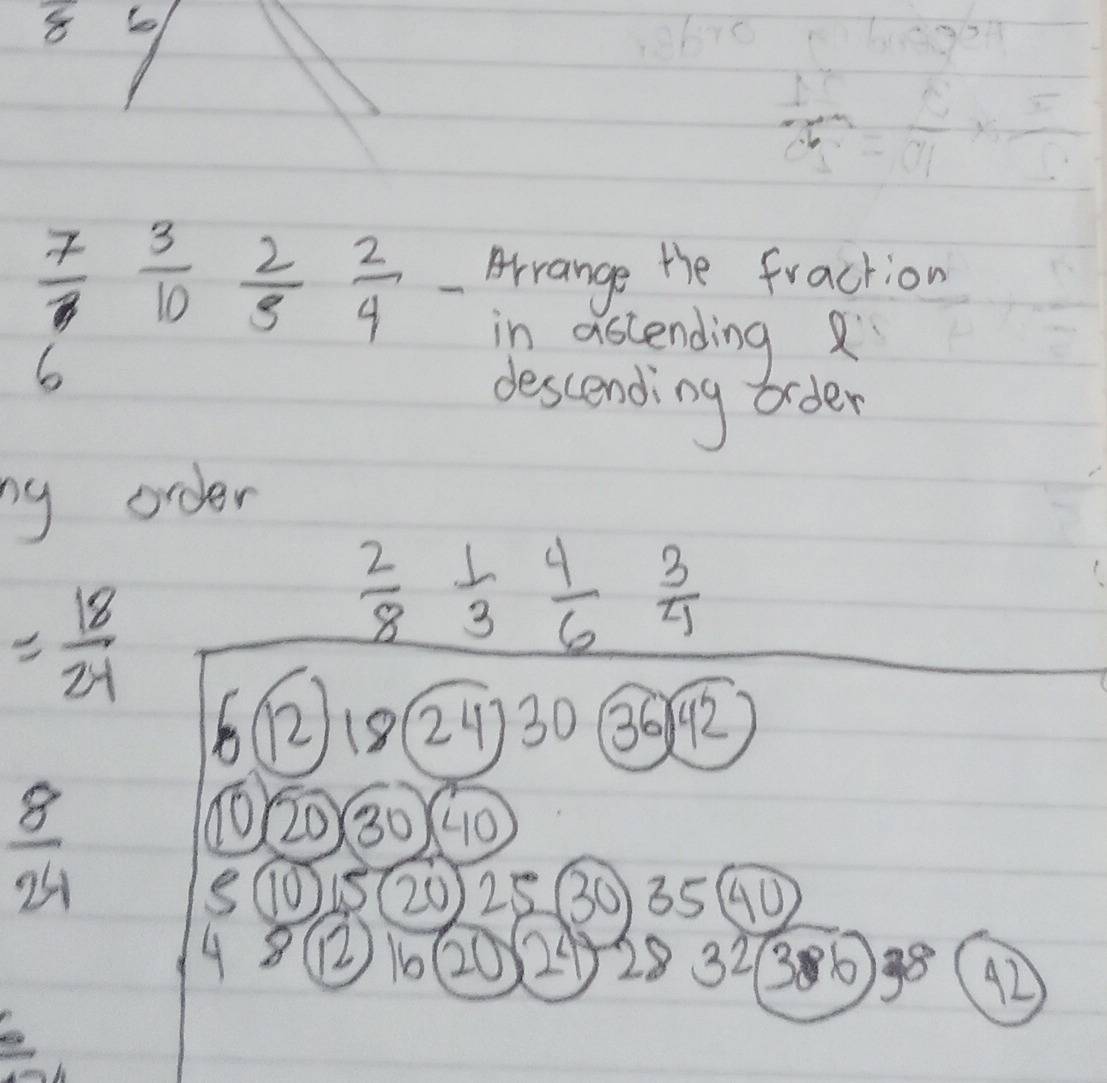 8 6
7/ 3/10 2/5 2/4 - Arrange the fraction
in ascending &
6 descending order
ng order
2/8 1/3 4/6 3/4
= 18/24
6 12 18 24 30 36 42
8/24 10 20 30 40
5 10 15 20 25 30 35 40
4 8 12 16 20 24 28 32 36 38 42